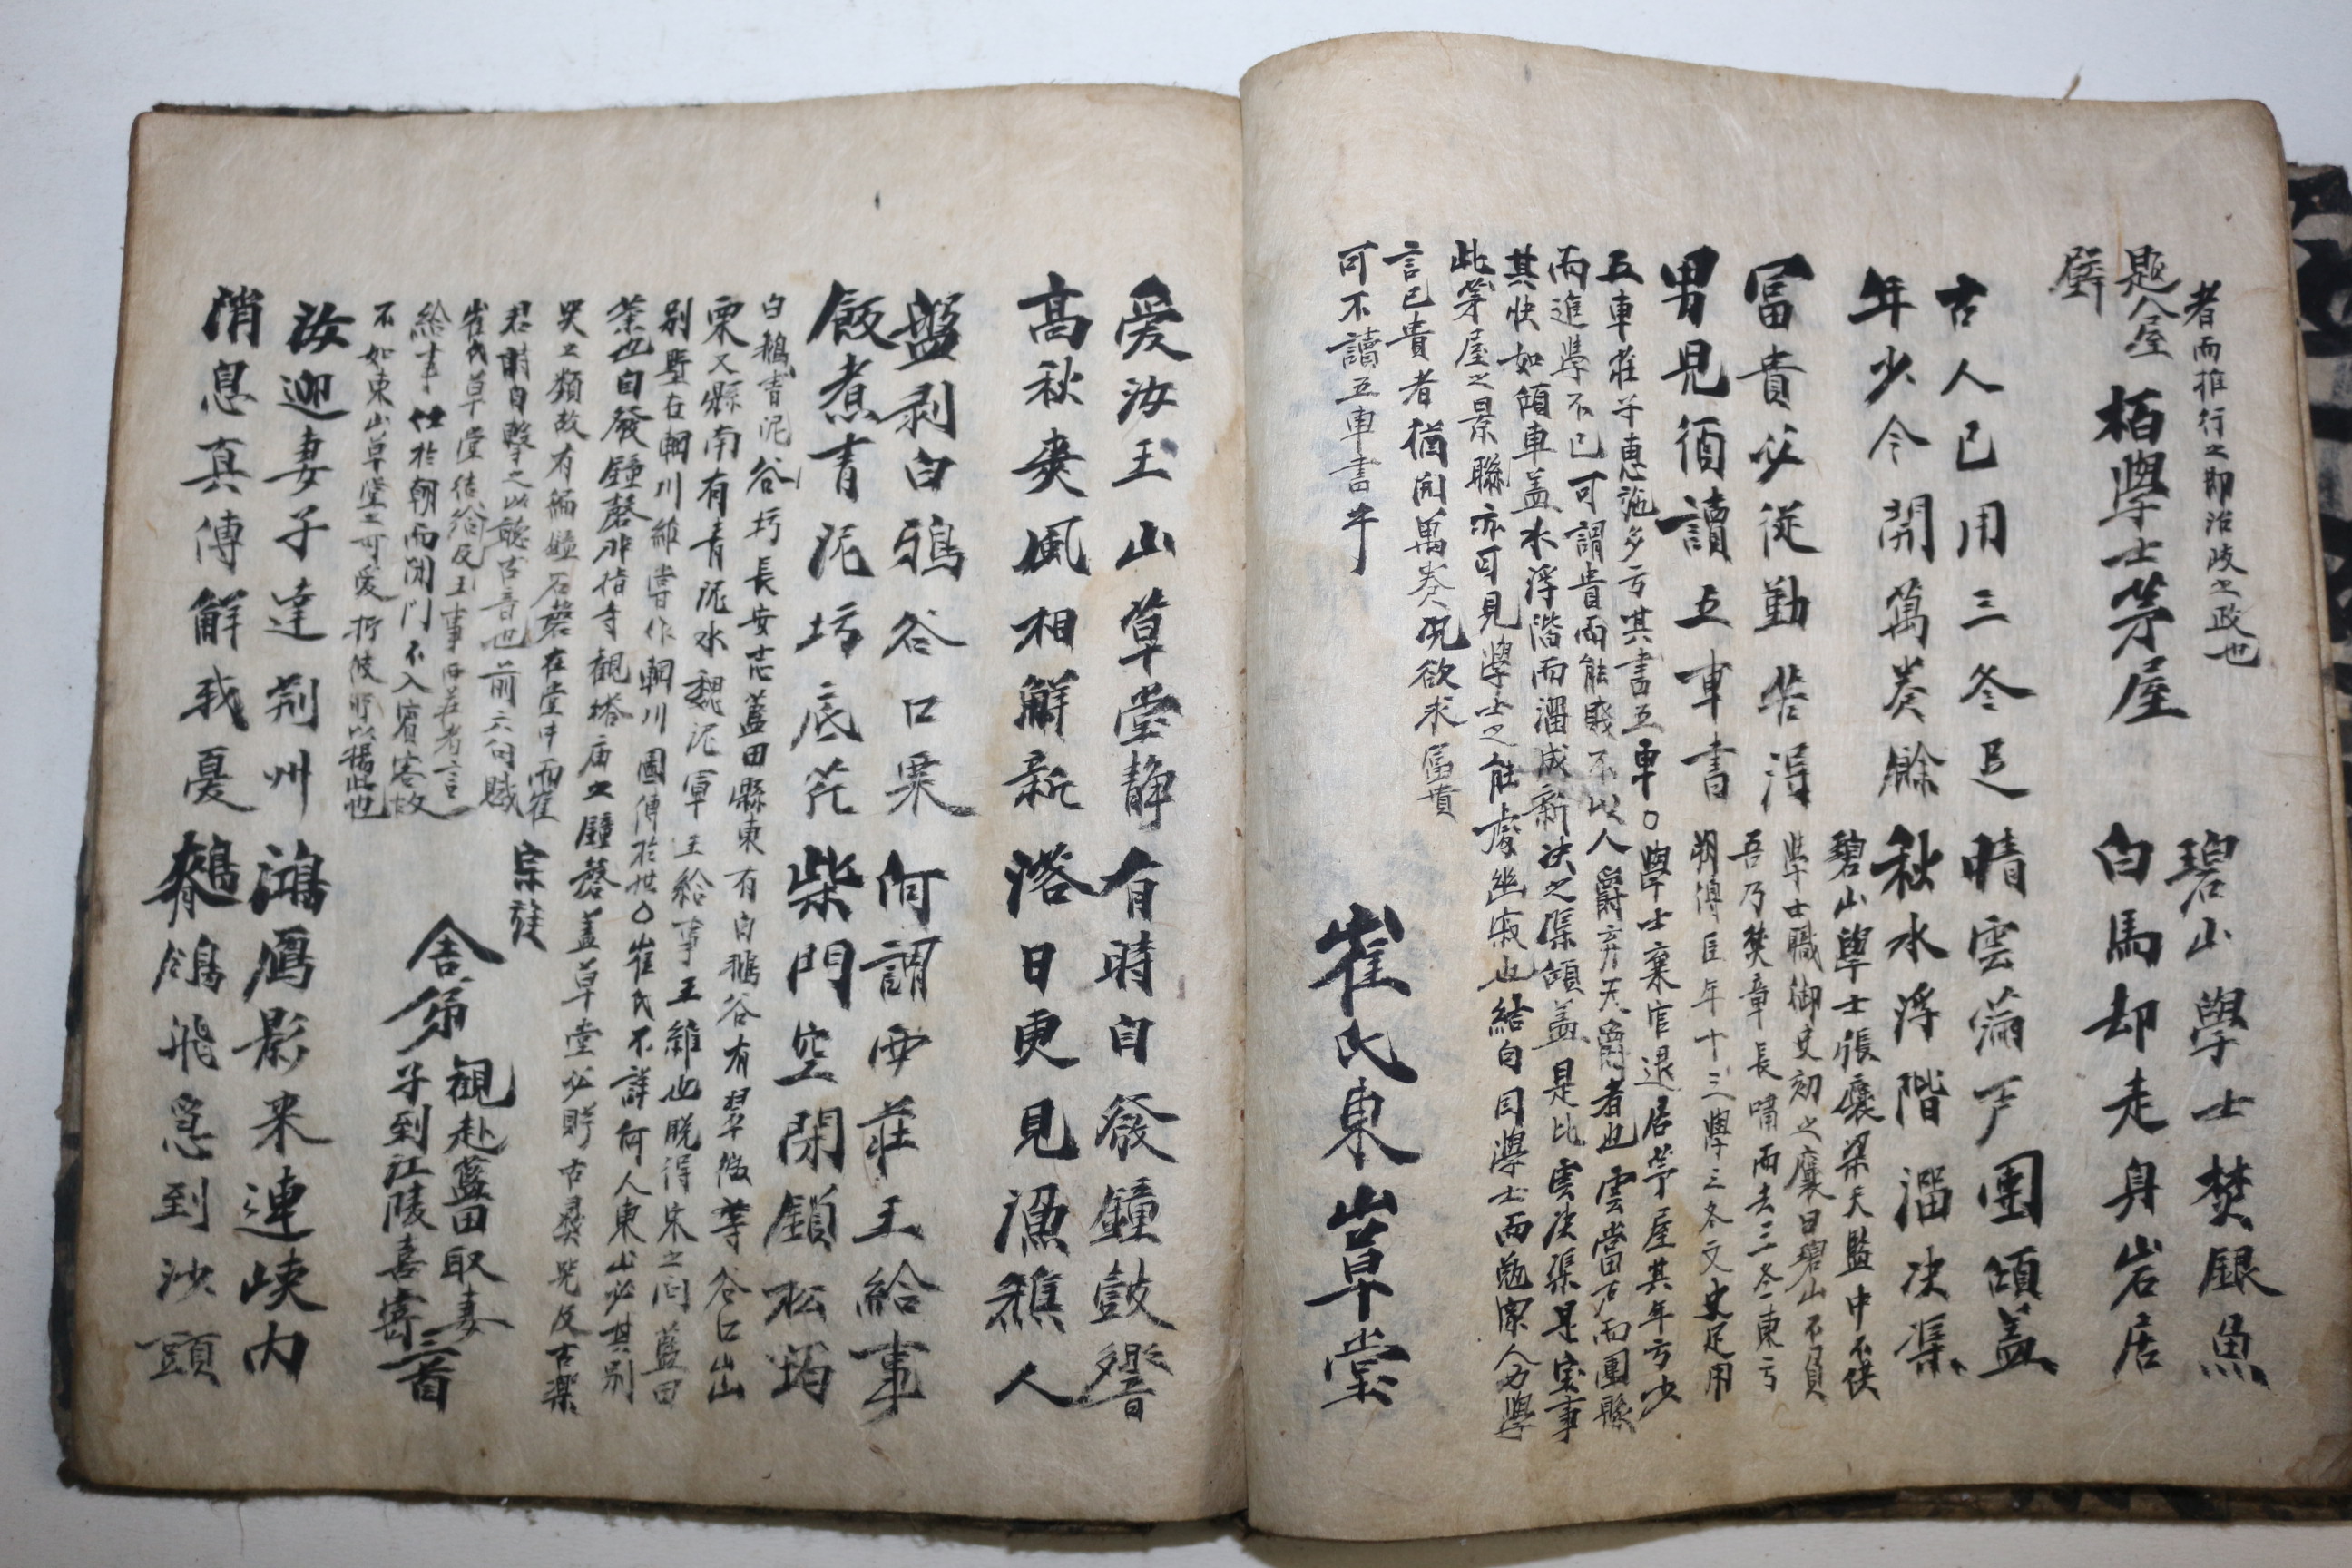 者而推行之即治陵之政也
題人屋壁
柏學士茅屋
碧山學士焚銀魚
白馬却走身岩居
古人已用三冬足
年少今開萬卷餘
晴雲滿戶團傾盖
秋水浮階溜决渠
富貴必從勤苦得
男兒須讀五車書
碧山學士張褒梁天監中不供
學士職御史劾之褒曰碧山不負
吾乃焚章長嘯而去三冬東方
朔傳臣年十三學三冬文史足用
五車莊子惠施多方其書五車○學士棄官退居茅屋其年方少
而進學不已可謂貴而能賤不以人爵弃天爵者也雲當戶而團縣
其快如傾車盖水浮階而溜成新决之渠傾盖是比雲决渠是宲事
此茅屋之景聯亦可見學士之能處幽寂也結句因學士而勉深人力學
言已貴者猶開萬卷况欲求富貴
可不讀五車書乎
崔氏東山草堂
爱汝玉山草堂静
高秋爽風相鮮新
有時自發鐘鼓響
落日更見漁樵人
盤剥白鴉谷口栗
飯煮青泥坊底芹
何謂西莊王給事
柴門空閉鎖松筠
白鵝青泥谷坊長安志藍田縣東有白鵝谷有翠微等谷口出
栗又縣南有青泥水魏泥軍王給事王維也晩得宋之问藍田
别墅在輞川維嘗作輞川圖傳於世○崔氏不詳何人東山必其别
業也自發鐘磬非指寺觀塔庙之鐘磬盖草堂必貯古彛器及古樂
器之類故有編鐘石磬在堂中而崔
君時自擊之以聽古音也前六句賦
崔氏草堂結給及王事西若者言
給事仕於朝而闭门不入賓客故
不如東山草堂之可爱
宗族
舍弟觀赴藍田取妻
子到江陵喜寄三首
汝迎妻子達荆州
消息真傳解我憂
鴻鴈影来連峽内
鶺鴒飛急到沙頭